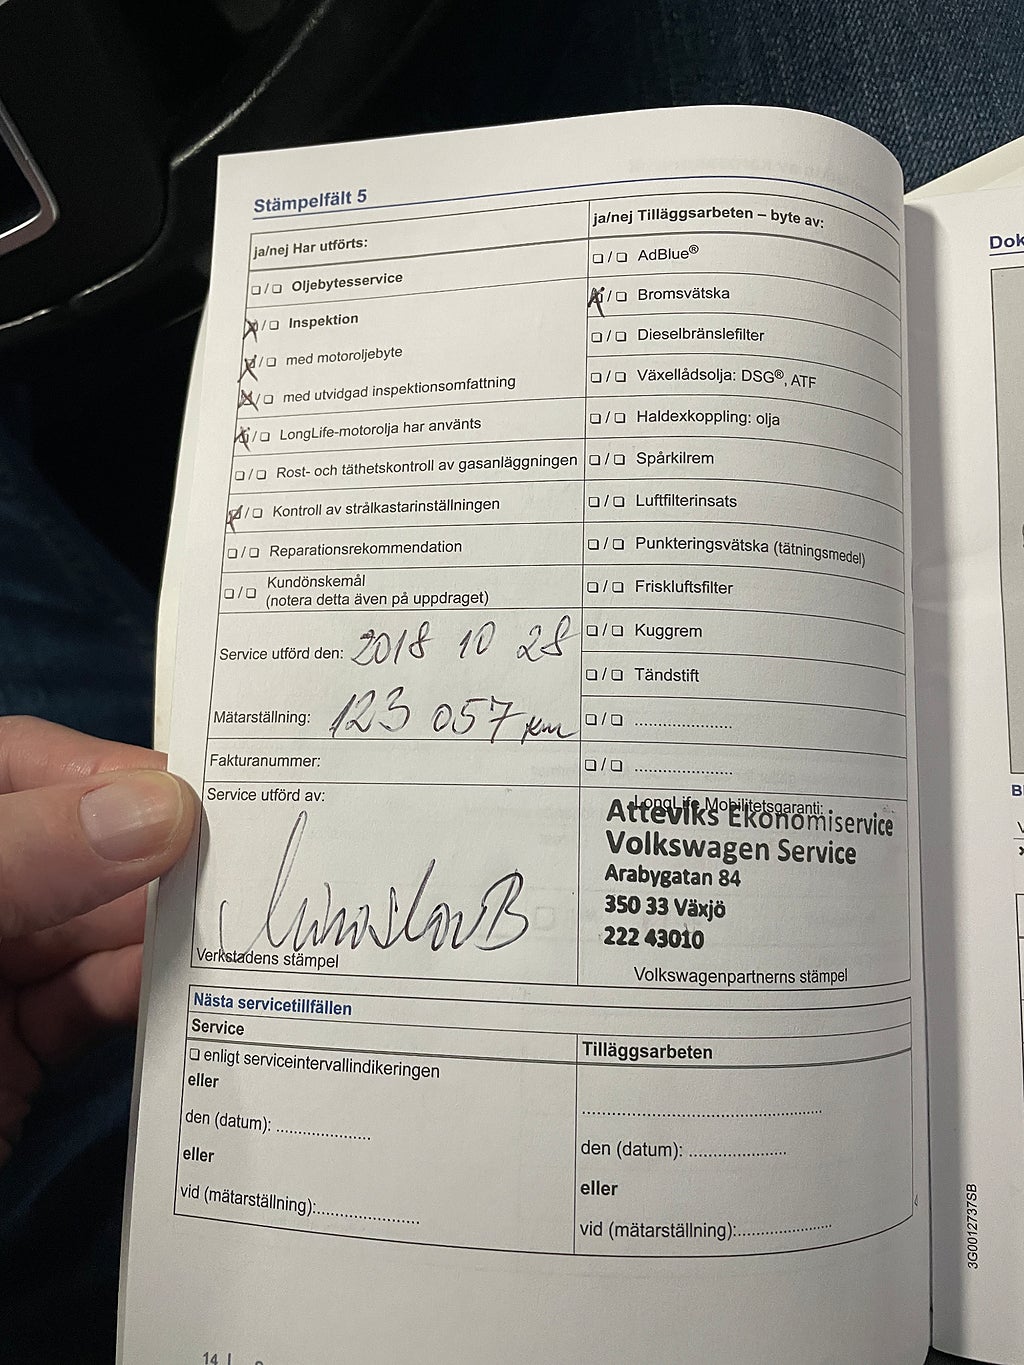 Stämpelfält 5
ja/nej Har utförts:
❑ / ❑ Oljebytesservice
❑ / ❑ Inspektion
❑ / ❑ med motoroljebyte
❑ / ❑ med utvidgad inspektionsomfattning
❑ / ❑ LongLife-motorolja har använts
❑ / ❑ Rost- och täthetskontroll av gasanläggningen
❑ / ❑ Kontroll av strålkastarinställningen
❑ / ❑ Reparationsrekommendation
❑ / ❑ Kundönskemål
(notera detta även på uppdraget)
Service utförd den: 2018 10 28
Mätarställning: 123 057 km
Fakturanummer:
Service utförd av:
MiroslavB
Verkstadens stämpel
ja/nej Tilläggsarbeten – byte av:
❑ / ❑ AdBlue®
❑ / ❑ Bromsvätska
❑ / ❑ Dieselbränslefilter
❑ / ❑ Växellådsolja: DSG®, ATF
❑ / ❑ Haldexkoppling: olja
❑ / ❑ Spårkilrem
❑ / ❑ Luftfilterinsats
❑ / ❑ Punkteringsvätska (tätningsmedel)
❑ / ❑ Friskluftsfilter
❑ / ❑ Kuggrem
❑ / ❑ Tändstift
❑ / ❑ ......................
❑ / ❑ ......................
LongLife Mobilitetsgaranti:
Atteviks Ekonomiservice
Volkswagen Service
Arabygatan 84
350 33 Växjö
222 43010
Volkswagenpartnerns stämpel
Nästa servicetillfällen
Service
❑ enligt serviceintervallindikeringen
eller
den (datum): .....................
eller
vid (mätarställning):.......................
Tilläggsarbeten
.....................................................
den (datum): .....................
eller
vid (mätarställning):.....................
14
Dok
3G0012737SB